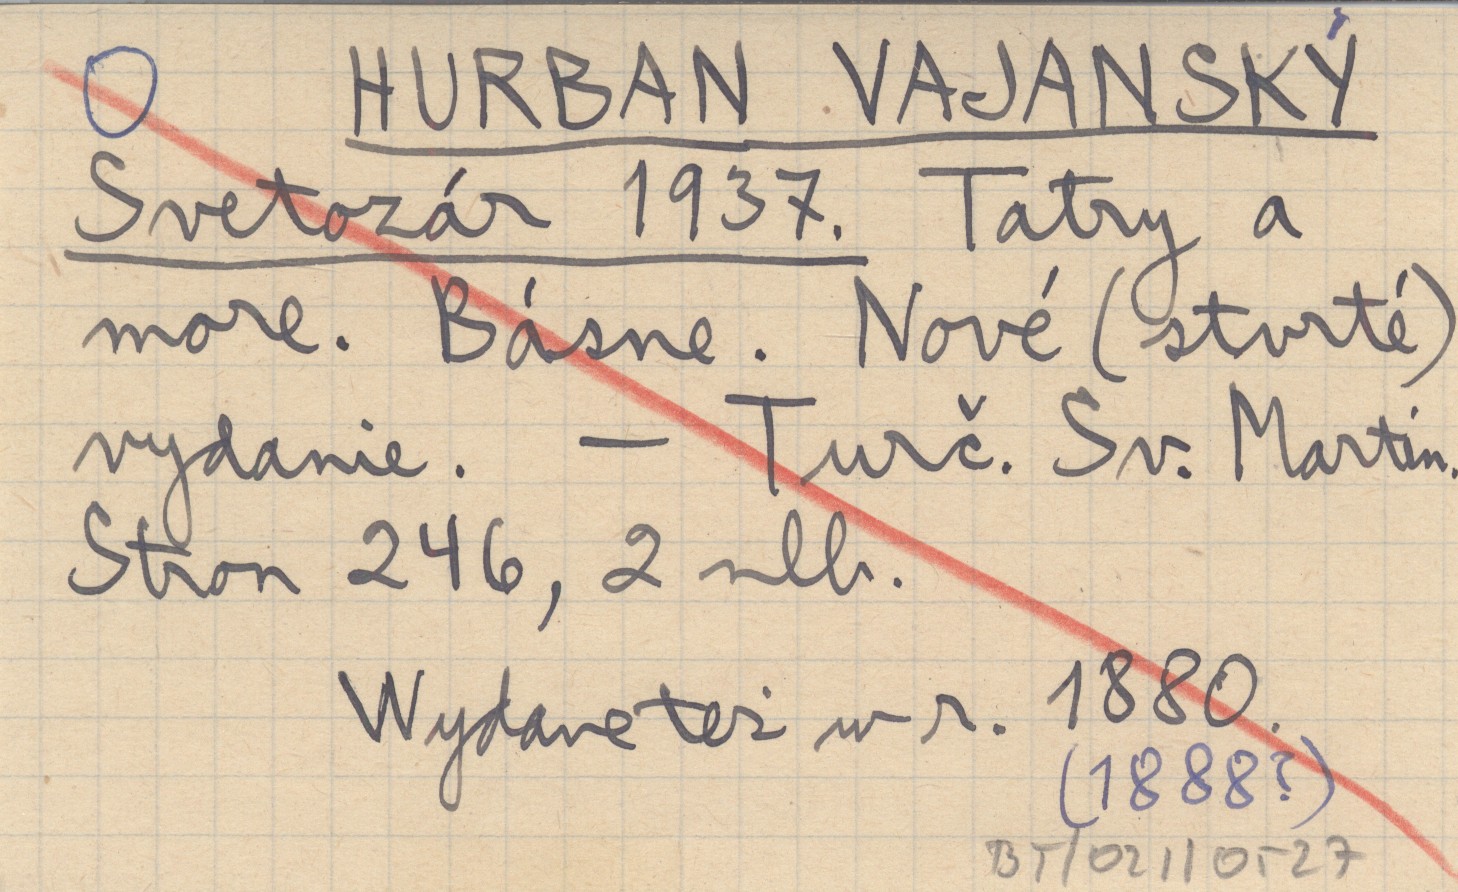 O HURBAN VAJANSKÝ
Svetozár 1937. Tatry a
more. Básne. Nové (stvrté)
vydanie. — Turč. Sv. Martin.
Stron 246, 2 nlb.
Wydane też w r. 1880.
(1888?)
BT/021/0527